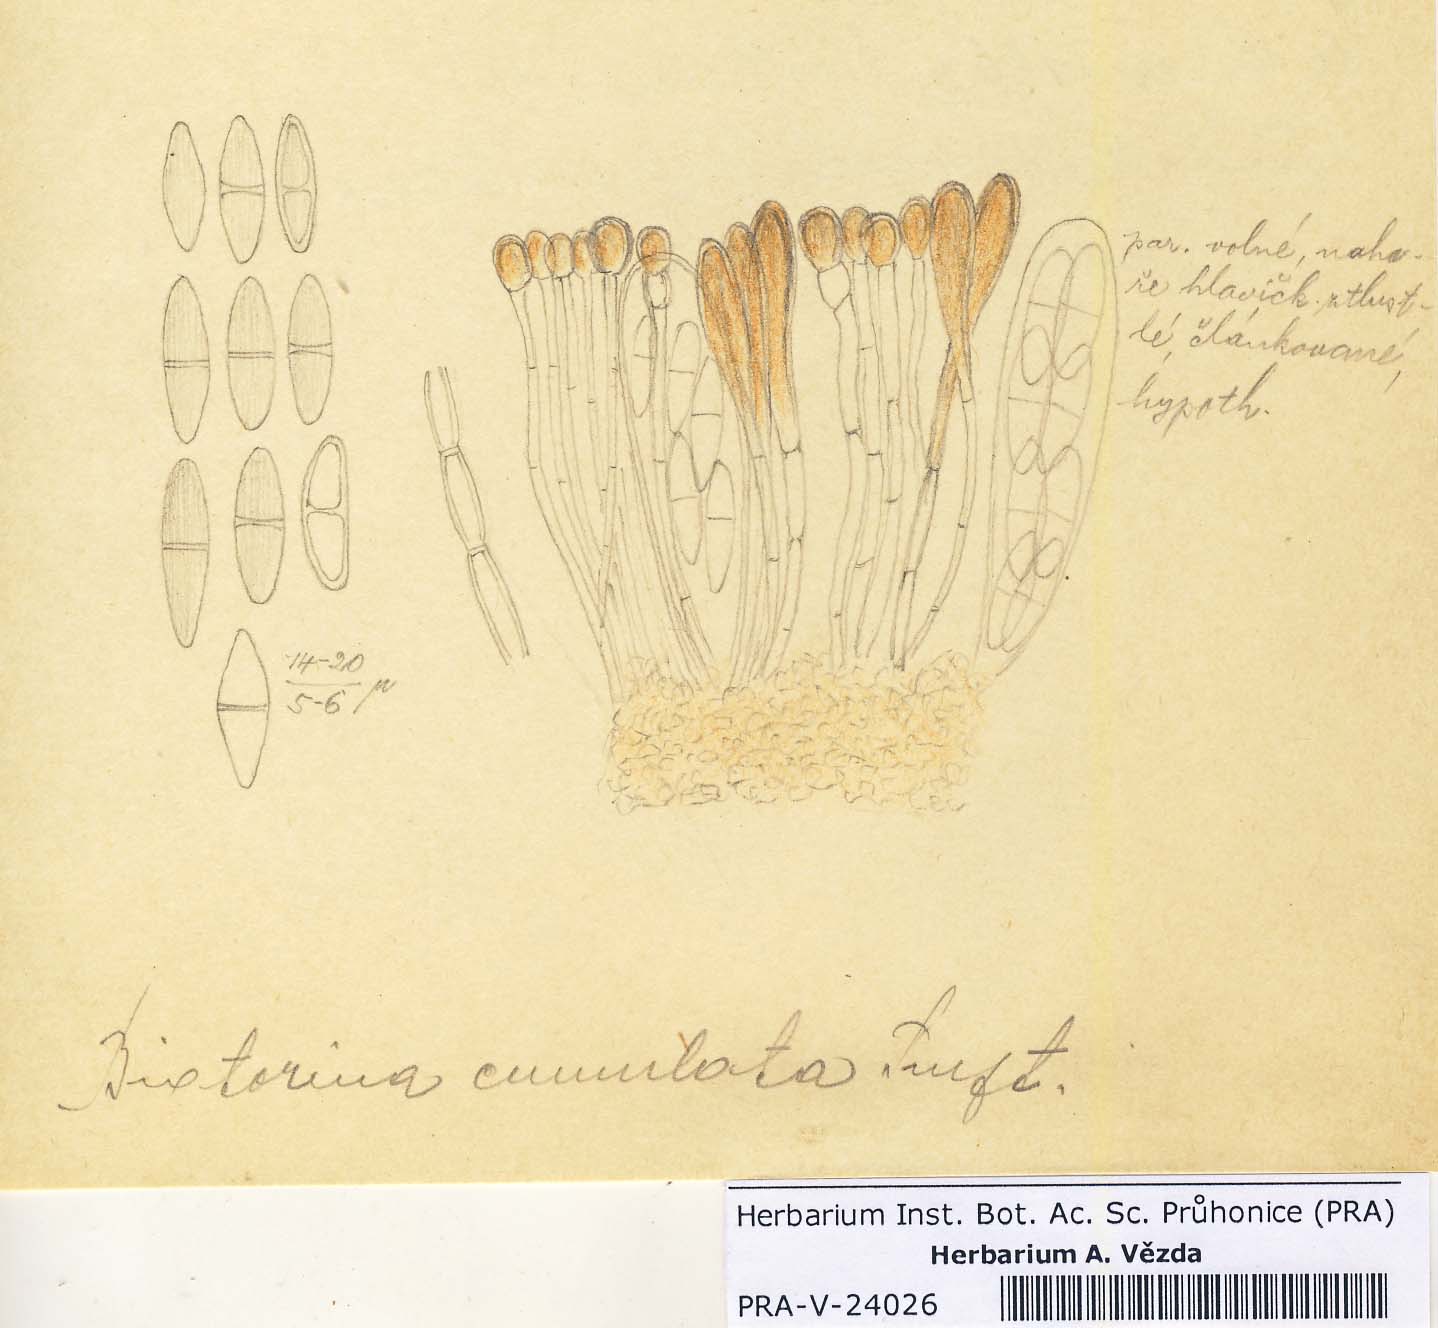 par. volné, naho-
ře hlavičk. ztlust-
lé, článkované,
hypoth.
14-20
5-6 μ
Biatorina cumulata Smft.
Herbarium Inst. Bot. Ac. Sc. Průhonice (PRA)
Herbarium A. Vězda
PRA-V-24026